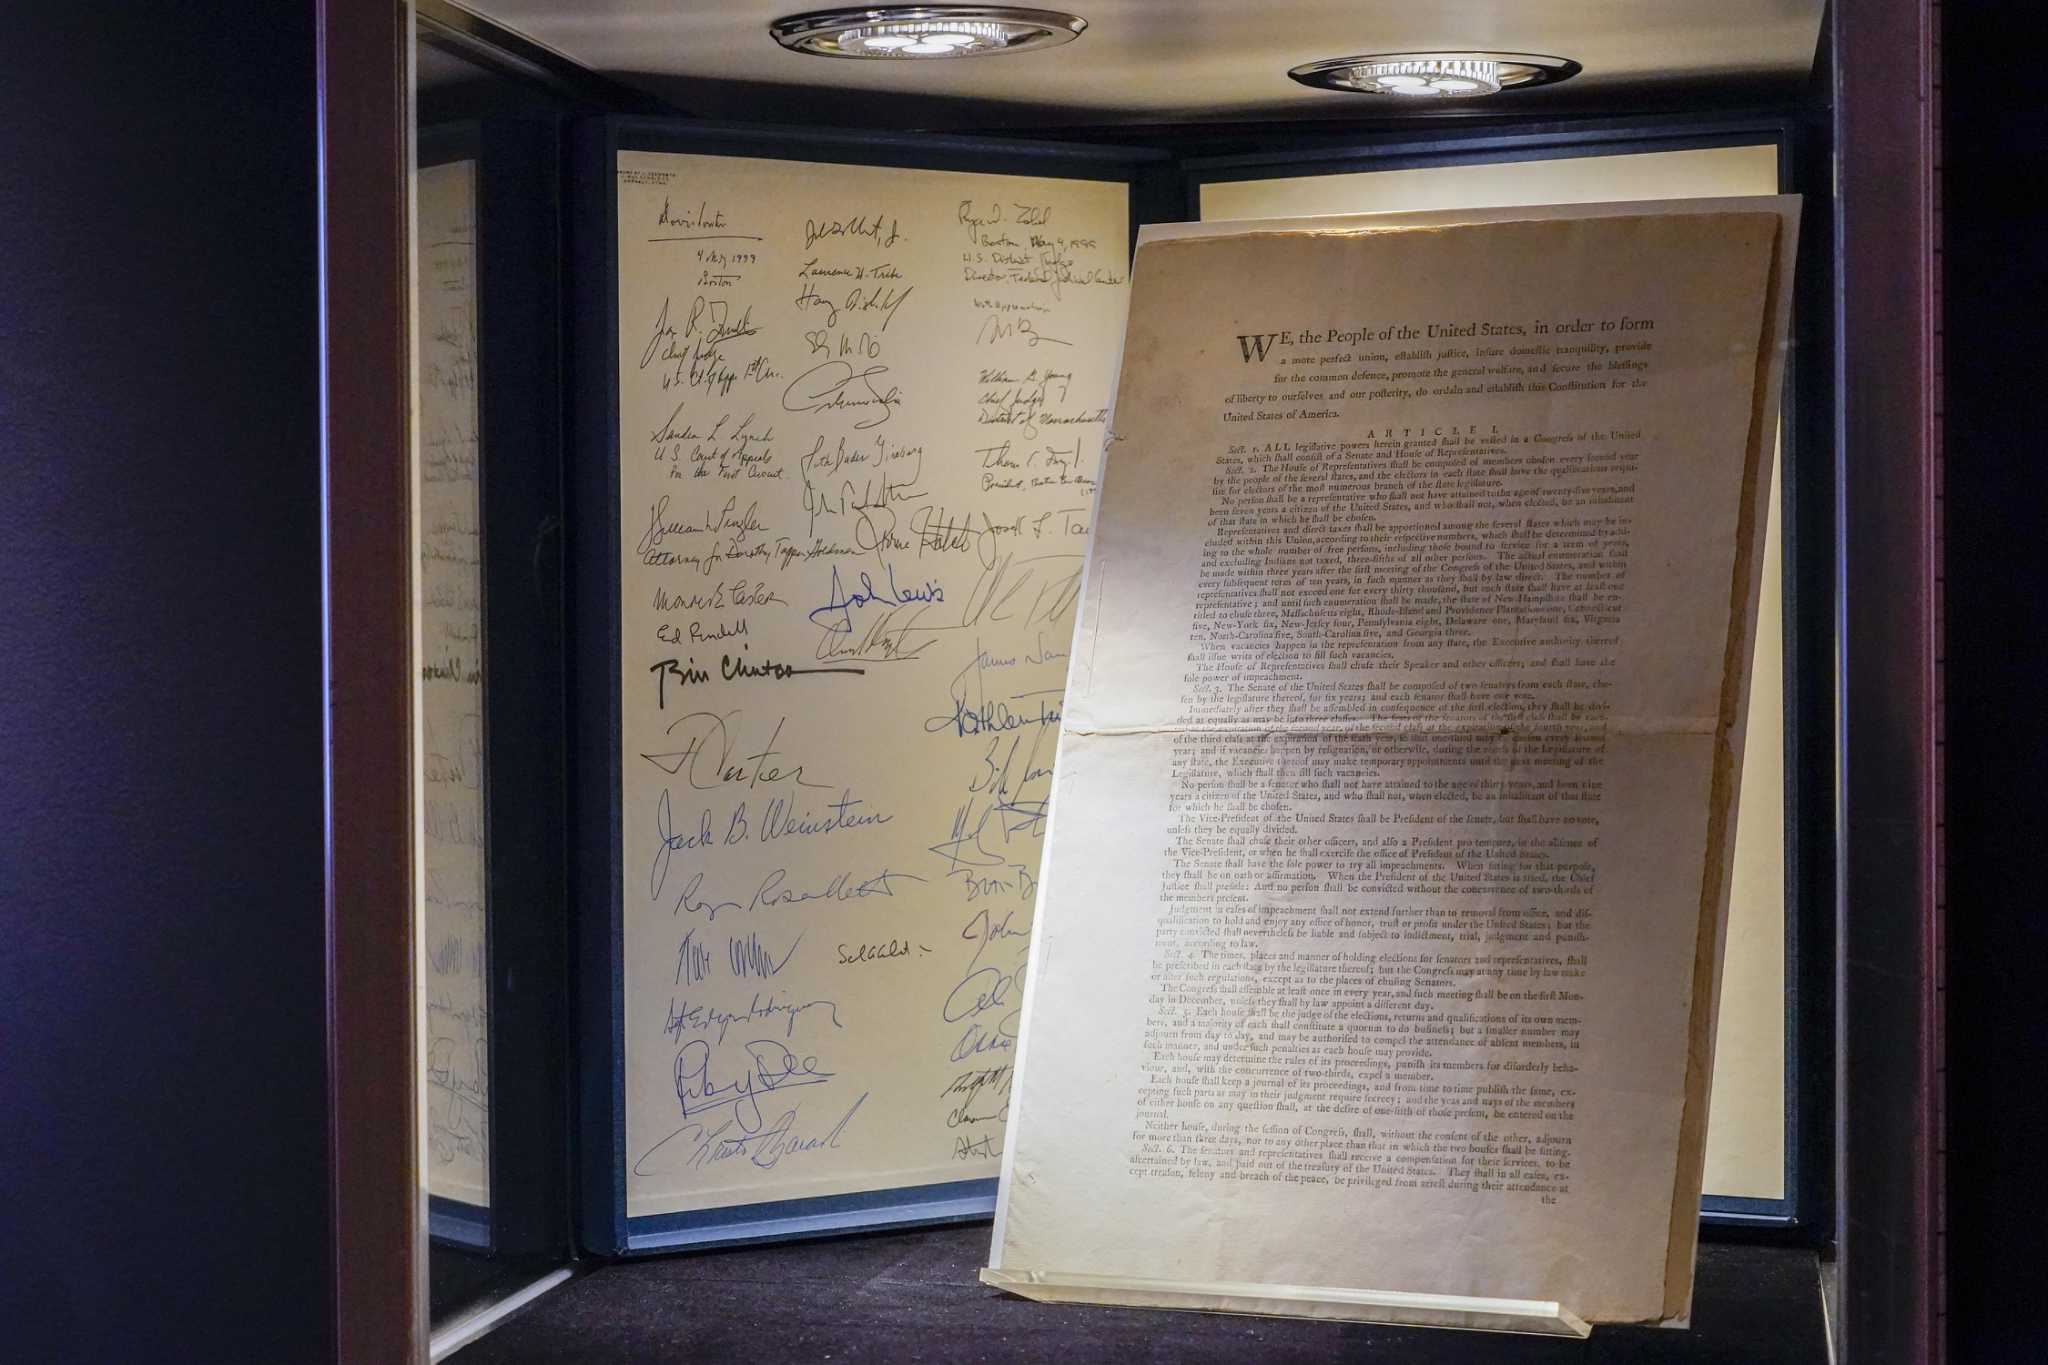 4 May 1999
Boston
Chief Judge
Sandra L Lynch
U.S. Court of Appeals
for the First Circuit.
Attorney for Dorothy Tapper Goldman
Ed Rendell
Bill Clinton
J Carter
Jack B. Weinstein
Laurence H. Tribe
Ruth Bader Ginsburg
John Lewis
Boston, May 4, 1999
U.S. District Judge
Director, Federal Judicial Center
William G. Young
Chief Judge
District of Massachusetts
WE, the People of the United States, in order to form
a more perfect union, establish justice, insure domestic tranquility, provide
for the common defence, promote the general welfare, and secure the blessings
of liberty to ourselves and our posterity, do ordain and establish this Constitution for the
United States of America.
ARTICLE I.
Sect. 1. ALL legislative powers herein granted shall be vested in a Congress of the United
States, which shall consist of a Senate and House of Representatives.
Sect. 2. The House of Representatives shall be composed of members chosen every second year
by the people of the several states, and the electors in each state shall have the qualifications requi-
site for electors of the most numerous branch of the state legislature.
No person shall be a representative who shall not have attained to the age of twenty-five years, and
been seven years a citizen of the United States, and who shall not, when elected, be an inhabitant
of that state in which he shall be chosen.
Representatives and direct taxes shall be apportioned among the several states which may be in-
cluded within this Union, according to their respective numbers, which shall be determined by add-
ing to the whole number of free persons, including those bound to service for a term of years,
and excluding Indians not taxed, three-fifths of all other persons. The actual enumeration shall
be made within three years after the first meeting of the Congress of the United States, and within
every subsequent term of ten years, in such manner as they shall by law direct. The number of
representatives shall not exceed one for every thirty thousand, but each state shall have at least one
representative; and until such enumeration shall be made, the state of New-Hampshire shall be en-
titled to chuse three, Massachusetts eight, Rhode-Island and Providence Plantations one, Connecticut
five, New-York six, New-Jersey four, Pennsylvania eight, Delaware one, Maryland six, Virginia
ten, North-Carolina five, South-Carolina five, and Georgia three.
When vacancies happen in the representation from any state, the Executive authority thereof
shall issue writs of election to fill such vacancies.
The House of Representatives shall chuse their Speaker and other officers; and shall have the
sole power of impeachment.
Sect. 3. The Senate of the United States shall be composed of two senators from each state, cho-
sen by the legislature thereof, for six years; and each senator shall have one vote.
Immediately after they shall be assembled in consequence of the first election, they shall be divi-
ded as equally as may be into three classes. The seats of the senators of the first class shall be vaca-
ted at the expiration of the second year, of the second class at the expiration of the fourth year, and
of the third class at the expiration of the sixth year, so that one-third may be chosen every second
year; and if vacancies happen by resignation, or otherwise, during the recess of the Legislature of
any state, the Executive thereof may make temporary appointments until the next meeting of the
Legislature, which shall then fill such vacancies.
No person shall be a senator who shall not have attained to the age of thirty years, and been nine
years a citizen of the United States, and who shall not, when elected, be an inhabitant of that state
for which he shall be chosen.
The Vice-President of the United States shall be President of the senate, but shall have no vote,
unless they be equally divided.
The Senate shall chuse their other officers, and also a President pro tempore, in the absence of
the Vice-President, or when he shall exercise the office of President of the United States.
The Senate shall have the sole power to try all impeachments. When sitting for that purpose,
they shall be on oath or affirmation. When the President of the United States is tried, the Chief
Justice shall preside: And no person shall be convicted without the concurrence of two-thirds of
the members present.
Judgment in cases of impeachment shall not extend further than to removal from office, and dis-
qualification to hold and enjoy any office of honor, trust or profit under the United States; but the
party convicted shall nevertheless be liable and subject to indictment, trial, judgment and punish-
ment, according to law.
Sect. 4. The times, places and manner of holding elections for senators and representatives, shall
be prescribed in each state by the legislature thereof; but the Congress may at any time by law make
or alter such regulations, except as to the places of chusing Senators.
The Congress shall assemble at least once in every year, and such meeting shall be on the first Mon-
day in December, unless they shall by law appoint a different day.
Sect. 5. Each house shall be the judge of the elections, returns and qualifications of its own mem-
bers, and a majority of each shall constitute a quorum to do business; but a smaller number may
adjourn from day to day, and may be authorised to compel the attendance of absent members, in
such manner, and under such penalties as each house may provide.
Each house may determine the rules of its proceedings, punish its members for disorderly beha-
viour, and, with the concurrence of two-thirds, expel a member.
Each house shall keep a journal of its proceedings, and from time to time publish the same, ex-
cepting such parts as may in their judgment require secrecy; and the yeas and nays of the members
of either house on any question shall, at the desire of one-fifth of those present, be entered on the
journal.
Neither house, during the session of Congress, shall, without the consent of the other, adjourn
for more than three days, nor to any other place than that in which the two houses shall be sitting.
Sect. 6. The senators and representatives shall receive a compensation for their services, to be
ascertained by law, and paid out of the treasury of the United States. They shall in all cases, ex-
cept treason, felony and breach of the peace, be privileged from arrest during their attendance at
the